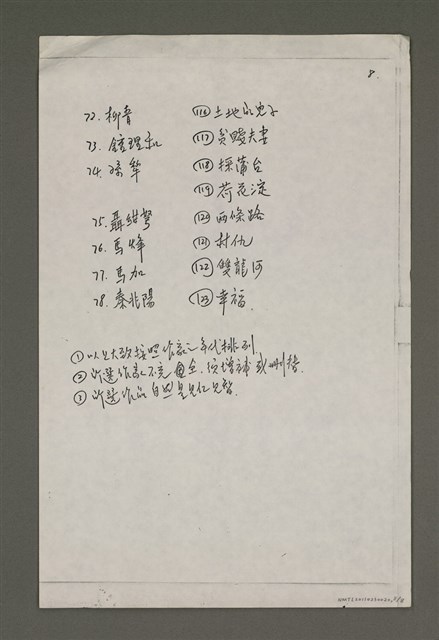 8.
72. 柳青 (116) 土地的兒子
73. 鍾理和 (117) 貧賤夫妻
74. 孫犂 (118) 採蒲台
(119) 荷花淀
75. 聶紺弩 (120) 兩條路
76. 馬烽 (121) 村仇
77. 馬加 (122) 雙龍河
78. 秦兆陽 (123) 幸福
① 以上大致按照作家之年代排列
② 所選作家不完全，須增補或刪掉.
③ 所選作品自然是見仁見智.